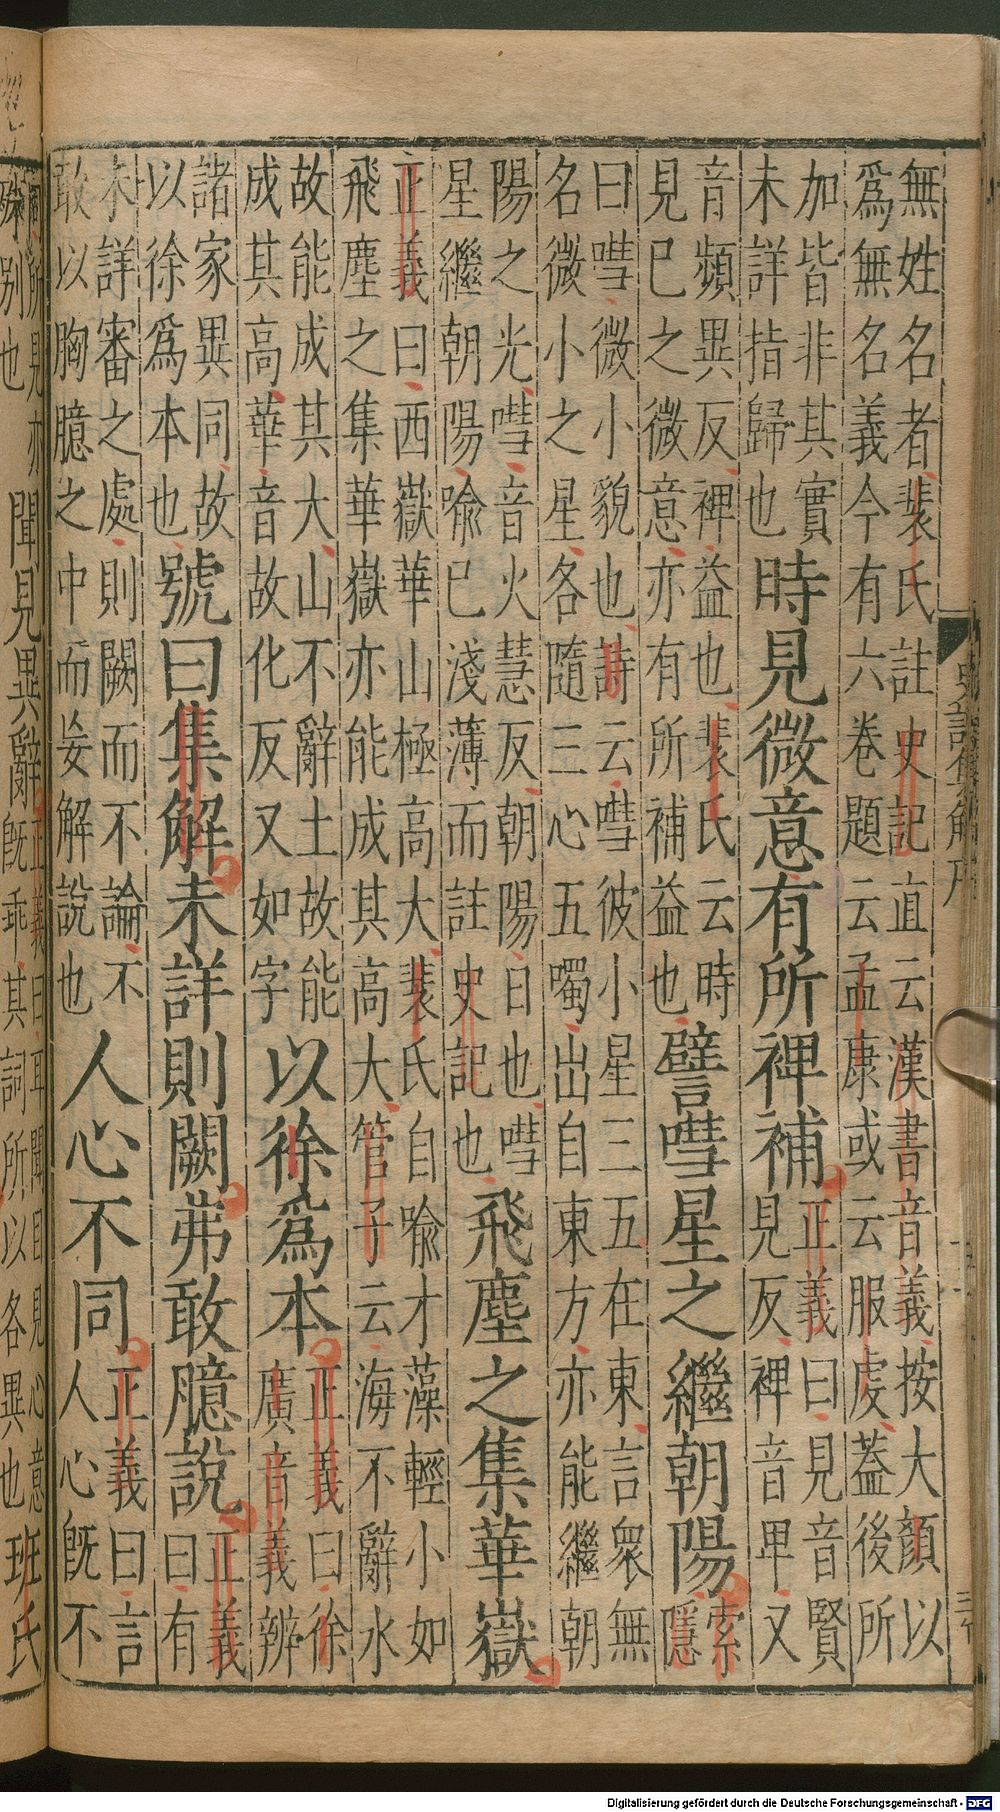 無姓名者裴氏註史記直云漢書音義按大顏以
爲無名義今有六卷題云孟康或云服虔蓋後所
加皆非其實
未詳指歸也
時見微意有所裨補
正義曰見音賢
見反裨音卑又
音頻異反裨益也裴氏云時
見已之微意亦有所補益也
譬嘒星之繼朝陽
索
隱
曰嘒微小貌也詩云嘒彼小星三五在東言衆無
名微小之星各隨三心五噣出自東方亦能繼朝
陽之光嘒音火慧反朝陽日也嘒
星繼朝陽喻已淺薄而註史記也
飛塵之集華嶽
正義曰西嶽華山極高大裴氏自喻才藻輕小如
飛塵之集華嶽亦能成其高大管子云海不辭水
故能成其大山不辭土故能
成其高華音故化反又如字
以徐爲本
正義曰徐
廣音義辨
諸家異同故
以徐爲本也
號曰集解未詳則闕弗敢臆說
正義
曰有
未詳審之處則闕而不論不
敢以胸臆之中而妄解說也
人心不同
正義曰言
人心旣不
聞見異辭
正義曰耳聞目見心意
旣乖其詞所以各異也
班氏
所見亦
殊別也
史記集解序
Digitalisierung gefördert durch die Deutsche Forschungsgemeinschaft - DFG